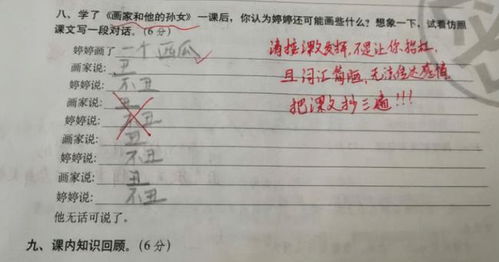 八、学了《画家和他的孙女》一课后，你认为婷婷还可能画些什么？想象一下，试着仿照
课文写一段对话。（6分）
婷婷画了 一个西瓜
画家说： 丑
婷婷说： 不丑
画家说： 丑
婷婷说： 不丑
画家说： 丑
婷婷说： 不丑
画家说： 丑
婷婷说： 不丑
他无话可说了。
请按课文发挥，不是让你抬杠，
且词汇简陋，无法传达感情。
把课文抄三遍！！！
九、课内知识回顾。（6分）